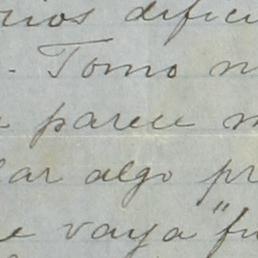 rios difici
. Tomo n
parece m
lar algo pr
e vaya "fu